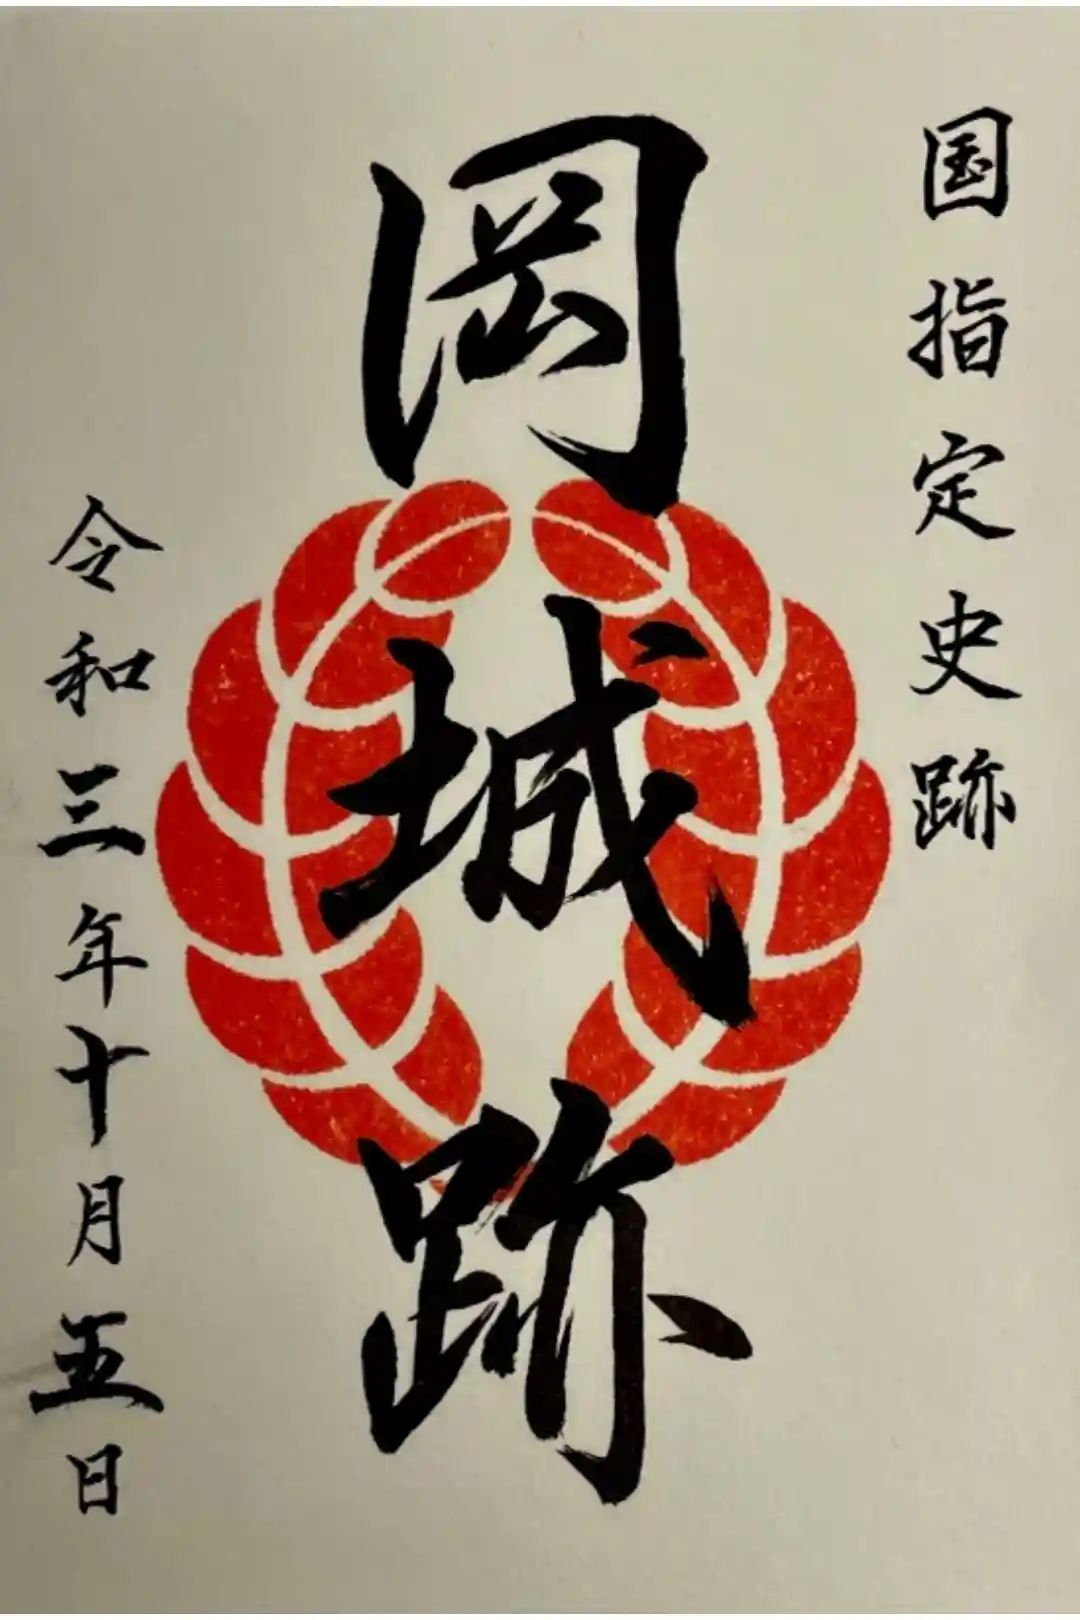 国指定史跡
岡城跡
令和三年十月五日